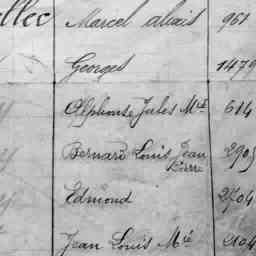 llec Marcel aliais 961
Georges 1479
Alphonse Jules Mie 614
Bernard Louis Jean
Pierre
Edmond 2704
Jean Louis Mie 2104